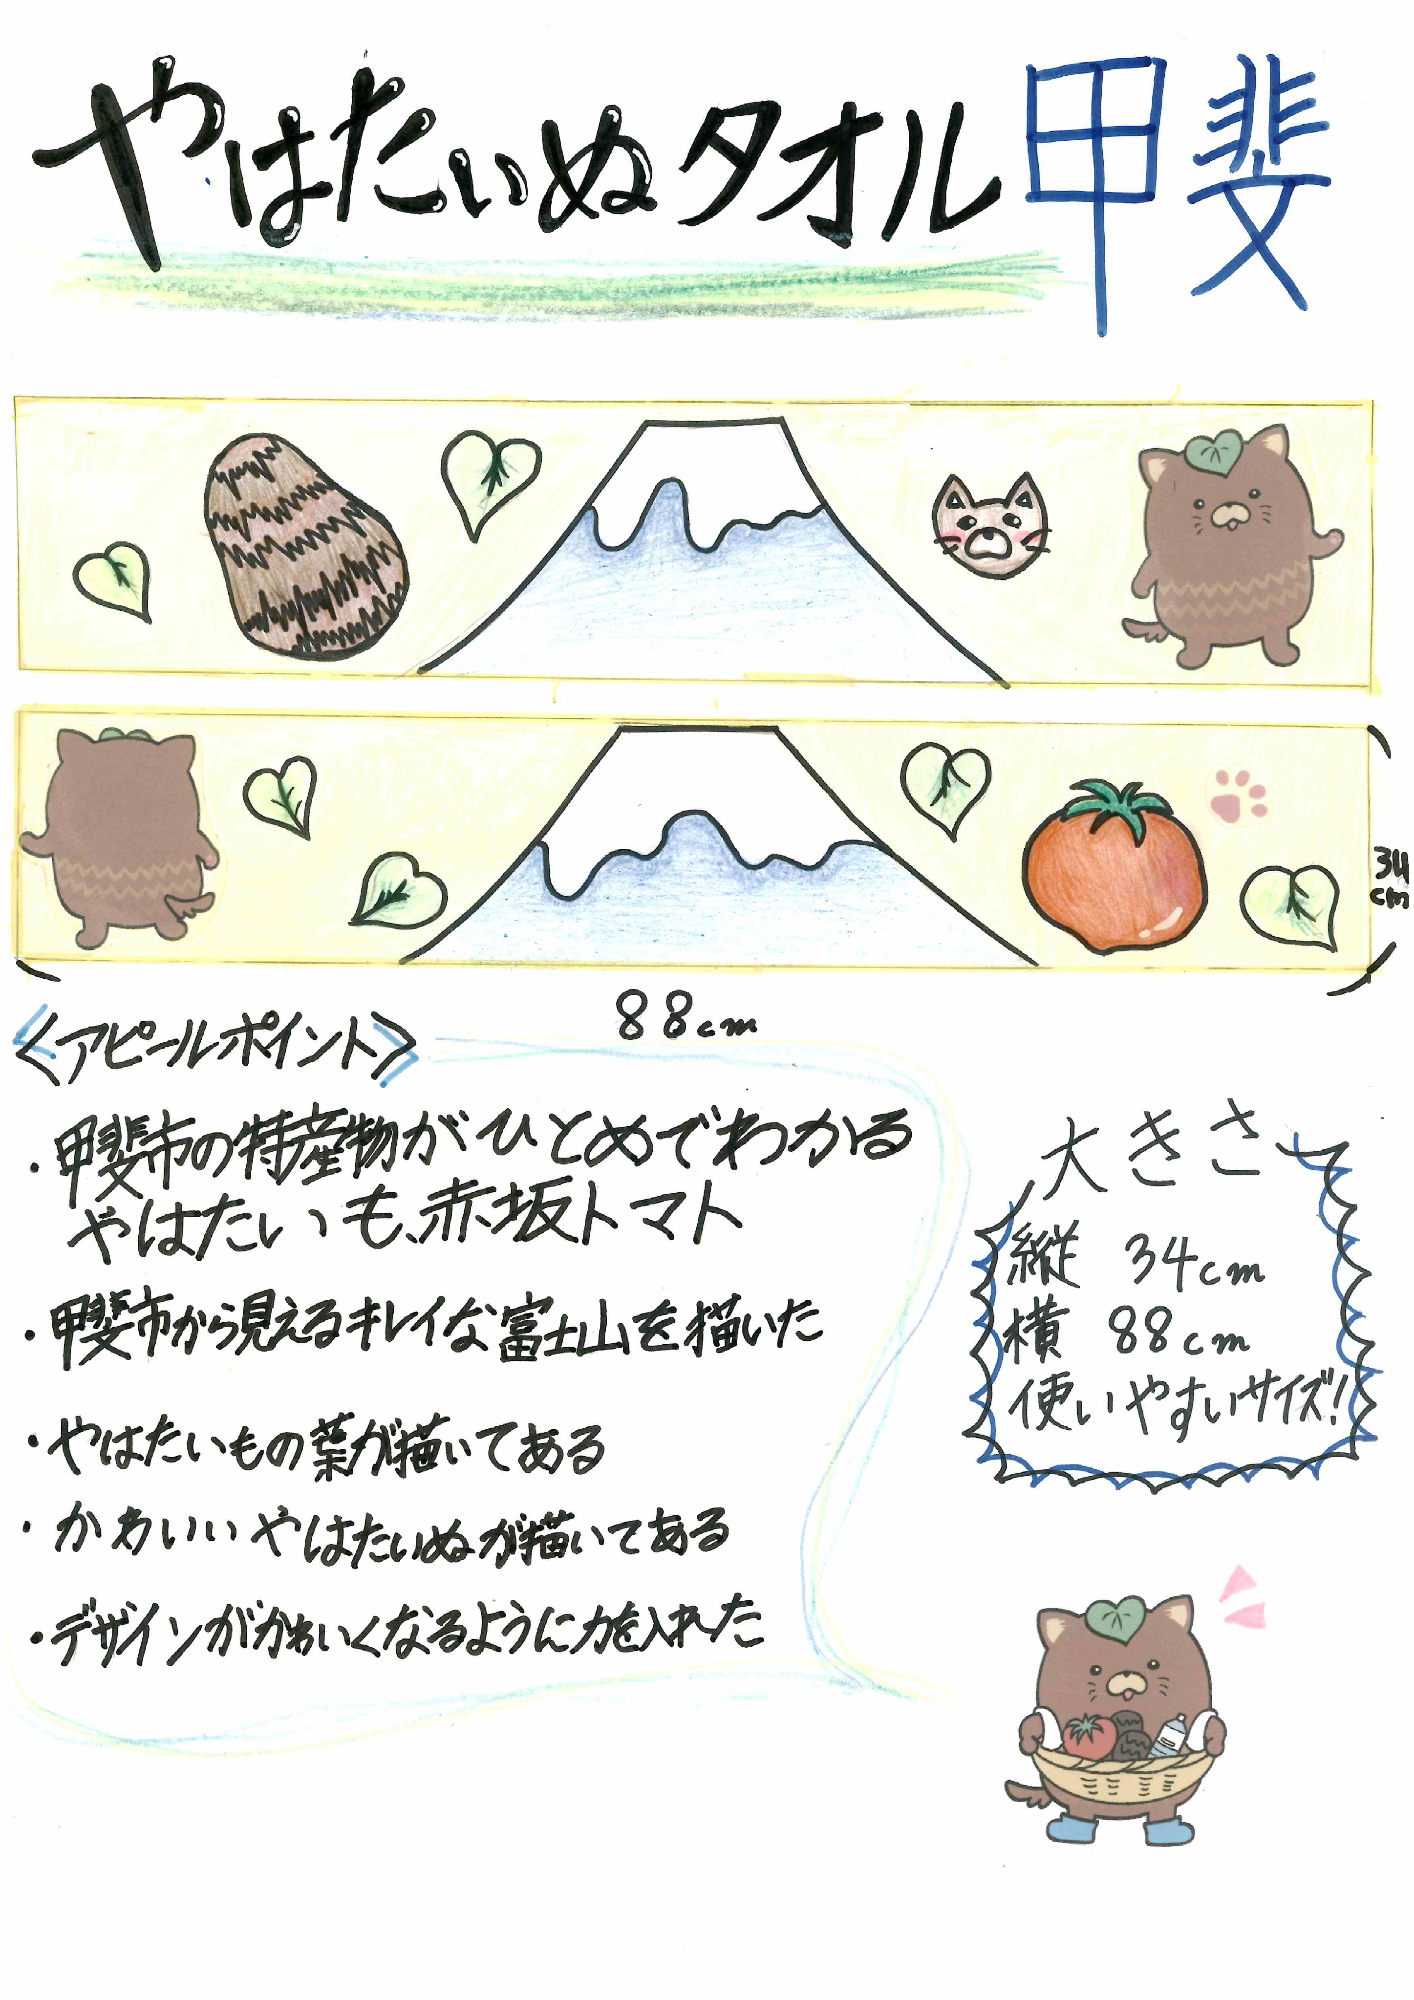 やはたいぬタオル甲斐
34
cm
88cm
<アピールポイント>
・甲斐市の特産物がひとめでわかる
やはたいも、赤坂トマト
・甲斐市から見えるキレイな富士山を描いた
・やはたいもの葉が描いてある
・かわいいやはたいぬが描いてある
・デザインがかわいくなるように力を入れた
大きさ
縦 34cm
横 88cm
使いやすいサイズ!